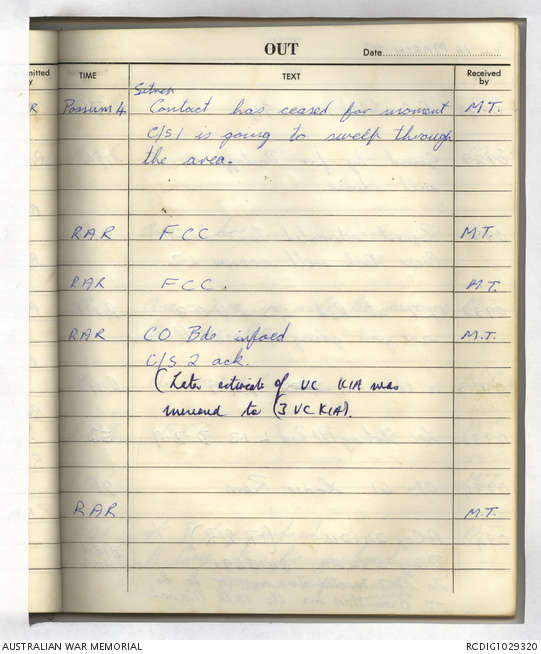 OUT
Date
mitted
y
TIME
TEXT
Received
by
Sitrep
R Possum 4 Contact has ceased for moment M.T.
C/S 1 is going to swelp through
the area.
RAR FCC M.T.
RAR FCC. M.T.
RAR CO Bde infoed M.T.
C/S 2 ack.
(Later estimate of VC KIA was
increased to (3 VC KIA).
RAR M.T.
AUSTRALIAN WAR MEMORIAL
RCDIG1029320